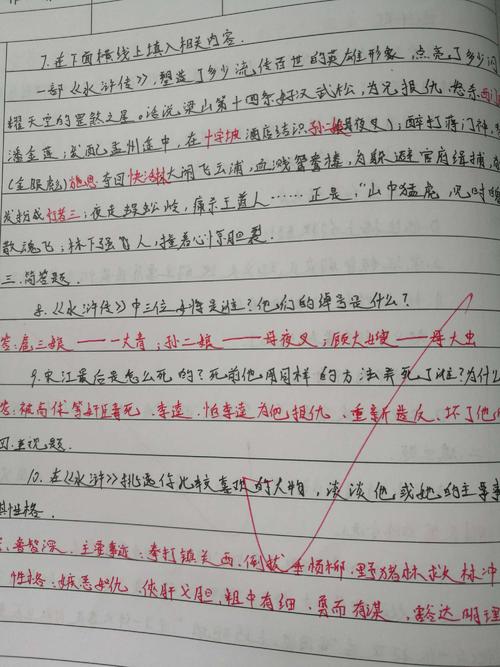 7.在下面横线上填入相关内容.
一部《水浒传》,塑造了多少流传百世的英雄形象,点亮了多少闪
耀天空的罡煞之星。话说梁山第十四条好汉武松,为兄报仇怒杀西门
潘金莲;发配孟州途中,在十字坡酒店结识孙二娘(母夜叉);醉打蒋门神,
(金眼彪)施恩夺回快活林大闹飞云浦,血溅鸳鸯楼,为躲避官府缉捕,
装扮成行者三;夜走蜈蚣岭,痛杀王道人……正是,"山中猛虎,见时魄
散魂飞;林下强人,撞着心惊胆裂.
三.简答题.
8.《水浒传》中三位女将是谁?他们的绰号是什么?
答:扈三娘——一丈青;孙二娘——母夜叉;顾大嫂——母大虫
9.宋江最后是怎么死的?死前他用同样的方法弄死了谁?为什么
答:被高俅等奸臣毒死.李逵.怕李逵为他报仇.重新造反.坏了他
四.主观题.
10.在《水浒》挑选你比较喜欢的人物,谈谈他或她的主要事
其性格.
鲁智深.主要事迹:拳打镇关西.倒拔垂杨柳.野猪林救林冲
性格:嫉恶如仇.侠肝义胆,粗中有细.勇而有谋,豁达明理